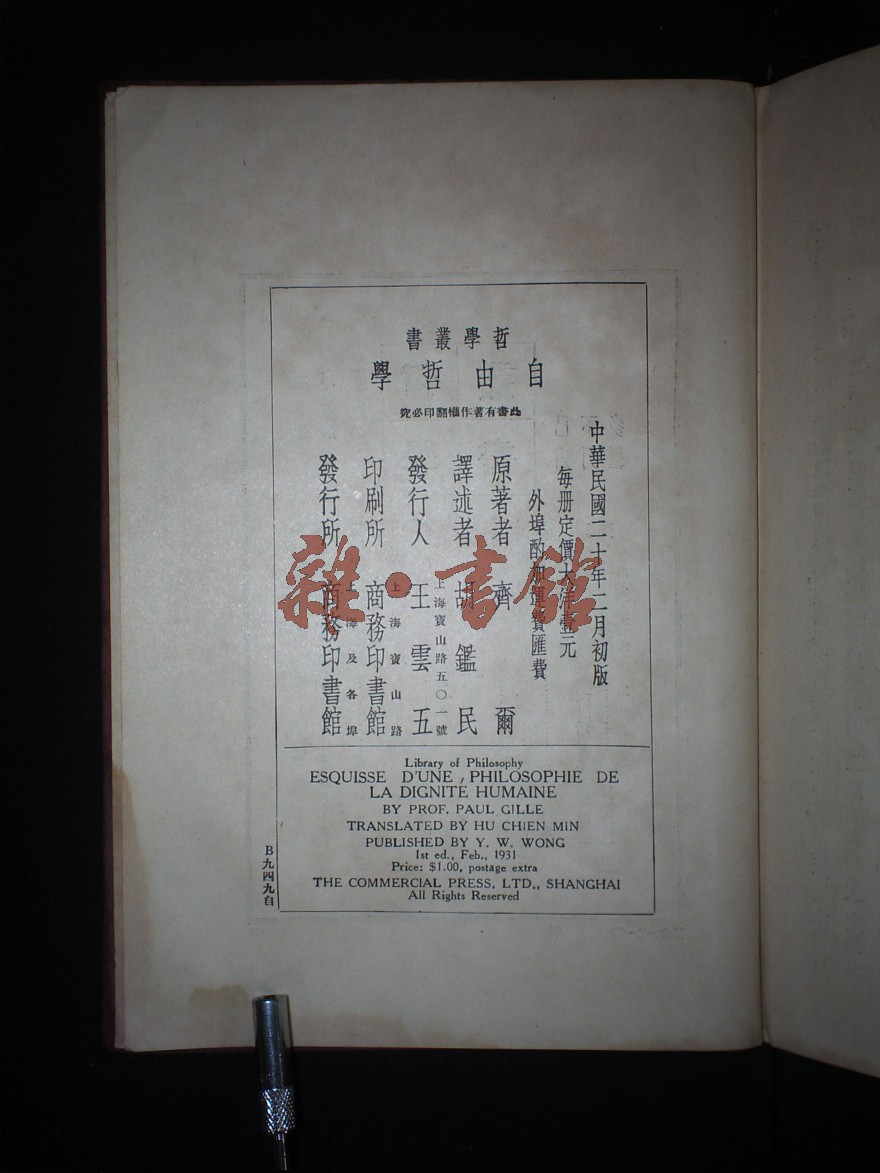 哲學叢書
自由哲學
此書有著作權翻印必究
中華民國二十年二月初版
每册定價大洋壹元
外埠酌加運費匯費
原著者 齊爾
譯述者 胡鑑民
上海寶山路五〇一號
發行人 王雲五
上海寶山路
印刷所 商務印書館
上海及各埠
發行所 商務印書館
雜·書館
Library of Philosophy
ESQUISSE D'UNE, PHILOSOPHIE DE
LA DIGNITE HUMAINE
BY PROF. PAUL GILLE
TRANSLATED BY HU CHIEN MIN
PUBLISHED BY Y. W. WONG
1st ed., Feb., 1931
Price: $1.00, postage extra
THE COMMERCIAL PRESS, LTD., SHANGHAI
All Rights Reserved
B九四九自